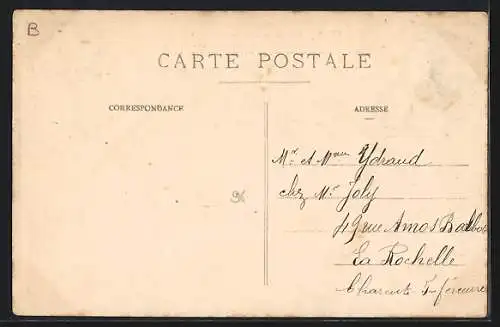 B
CARTE POSTALE
CORRESPONDANCE
ADRESSE
Mr et Mme Ydraud
chez Mr Joly
49 rue Amos Barbot
La Rochelle
Charente Inférieure